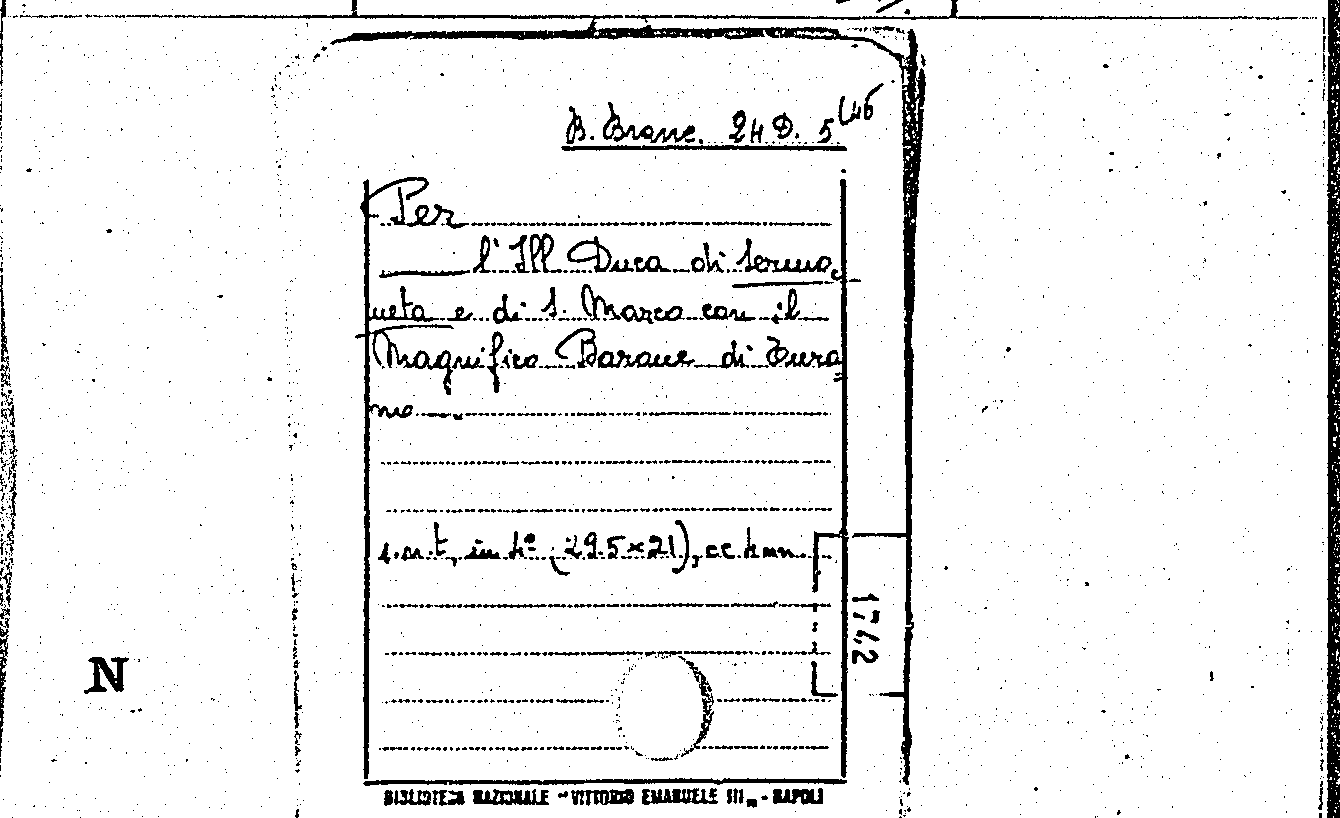 B. Branc. 24 D. 5 (46
Per
l'Ill Duca di Sermo,
neta e di S. Marco con il
Magnifico Barone di Tura
no
s.n.t., in 4° (29.5×21), cc
1742
N
BIBLIOTECA NAZIONALE - "VITTORIO EMANUELE III" - NAPOLI